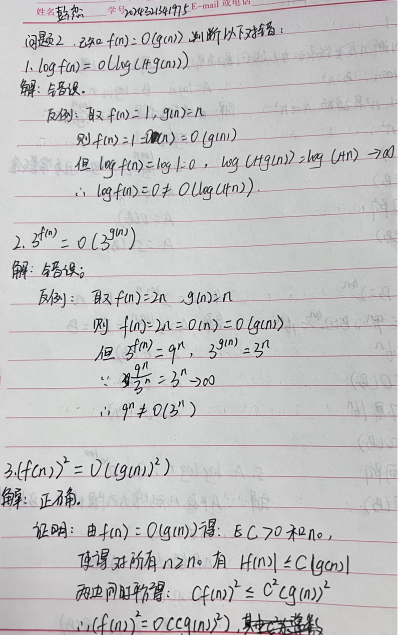 姓名 彭杰 学号 2024321341975 E-mail 或电话
问题2. 已知 f(n) = O(g(n)) 判断以下对错:
1. logf(n) = O(log(1+g(n)))
解: 错误。
反例: 取 f(n) = 1, g(n) = n
则 f(n) = 1 = O(n) = O(g(n))
但 logf(n) = log1 = 0, log(1+g(n)) = log(1+n) → ∞
∴ logf(n) = 0 ≠ O(log(1+n)).
2. 3^{f(n)} = O(3^{g(n)})
解: 错误。
反例: 取 f(n) = 2n, g(n) = n
则 f(n) = 2n = O(n) = O(g(n))
但 3^{f(n)} = 9^n, 3^{g(n)} = 3^n
∵ 9^n/3^n = 3^n → ∞
∴ 9^n ≠ O(3^n)
3. (f(n))^2 = O((g(n))^2)
解: 正确.
证明: 由 f(n) = O(g(n)) 得: ∃C>0 和 n₀,
使得对所有 n≥n₀ 有 |f(n)| ≤ C|g(n)|
两边同时平方得: (f(n))^2 ≤ C^2(g(n))^2
∴ (f(n))^2 = O((g(n))^2),